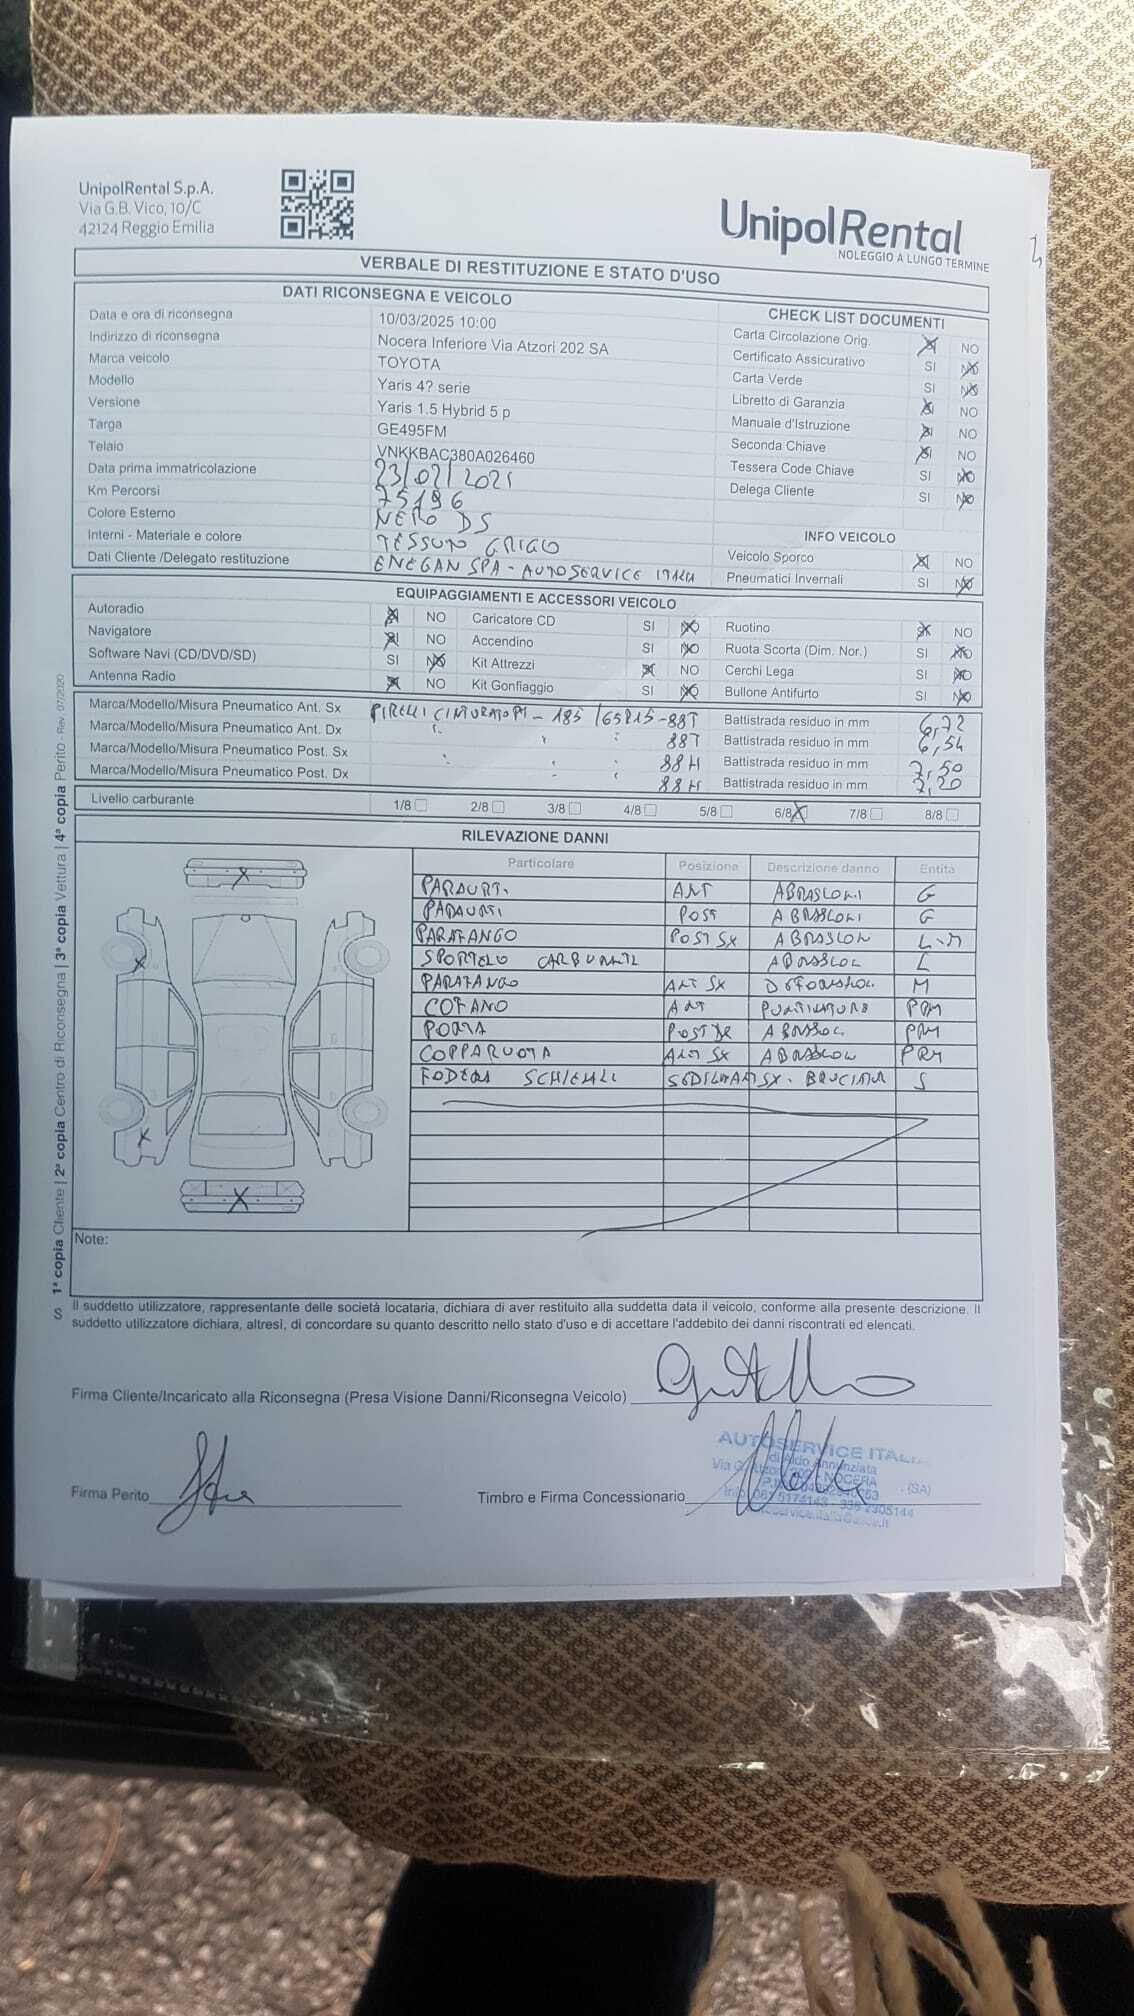 UnipolRental S.p.A.
Via G.B. Vico, 10/C
42124 Reggio Emilia
UnipolRental
NOLEGGIO A LUNGO TERMINE
VERBALE DI RESTITUZIONE E STATO D'USO
DATI RICONSEGNA E VEICOLO
Data e ora di riconsegna 10/03/2025 10:00
Indirizzo di riconsegna Nocera Inferiore Via Atzori 202 SA
Marca veicolo TOYOTA
Modello Yaris 4? serie
Versione Yaris 1.5 Hybrid 5 p
Targa GE495FM
Telaio VNKKBAC380A026460
Data prima immatricolazione 23/02/2021
Km Percorsi 75196
Colore Esterno NERO DS
Interni - Materiale e colore TESSUTO GRIGIO
Dati Cliente /Delegato restituzione ENEGAN SPA - AUTOSERVICE ITALIA
CHECK LIST DOCUMENTI
Carta Circolazione Orig. SI NO
Certificato Assicurativo SI NO
Carta Verde SI NO
Libretto di Garanzia SI NO
Manuale d'Istruzione SI NO
Seconda Chiave SI NO
Tessera Code Chiave SI NO
Delega Cliente SI NO
INFO VEICOLO
Veicolo Sporco SI NO
Pneumatici Invernali SI NO
EQUIPAGGIAMENTI E ACCESSORI VEICOLO
Autoradio SI NO Caricatore CD SI NO Ruotino SI NO
Navigatore SI NO Accendino SI NO Ruota Scorta (Dim. Nor.) SI NO
Software Navi (CD/DVD/SD) SI NO Kit Attrezzi SI NO Cerchi Lega SI NO
Antenna Radio SI NO Kit Gonfiaggio SI NO Bullone Antifurto SI NO
Marca/Modello/Misura Pneumatico Ant. Sx PIRELLI CINTURATO P1 - 185/65R15-88T Battistrada residuo in mm 6,72
Marca/Modello/Misura Pneumatico Ant. Dx " " " 88T Battistrada residuo in mm 6,54
Marca/Modello/Misura Pneumatico Post. Sx 88H Battistrada residuo in mm
Marca/Modello/Misura Pneumatico Post. Dx 88H Battistrada residuo in mm
Livello carburante 1/8 2/8 3/8 4/8 5/8 6/8 7/8 8/8
RILEVAZIONE DANNI
Particolare Posizione Descrizione danno Entita
PARAURTI ANT ABRASIONI G
PARAURTI POST ABRASIONI G
PARAFANGO POST SX ABRASION L-M
SPORTELLO CARBURANTE ABRASION L
PARAFANGO ANT SX DEFORMAZION M
COFANO ANT PUNTINATURE PRM
PORTA POST ABRASION PRM
COPPARUOTA ANT SX ABRASION PRM
FODERA SCHIENALE SEDILE ANT SX. BRUCIATUR S
Note:
Il suddetto utilizzatore, rappresentante delle società locataria, dichiara di aver restituito alla suddetta data il veicolo, conforme alla presente descrizione. Il
suddetto utilizzatore dichiara, altresì, di concordare su quanto descritto nello stato d'uso e di accettare l'addebito dei danni riscontrati ed elencati.
Firma Cliente/Incaricato alla Riconsegna (Presa Visione Danni/Riconsegna Veicolo)
Firma Perito
Timbro e Firma Concessionario
AUTOSERVICE ITALIA
di Aldo Annunziata
NOCERA (SA)
S 1ª copia Cliente | 2ª copia Centro di Riconsegna | 3ª copia Vettura | 4ª copia Perito - Rev. 07/2020